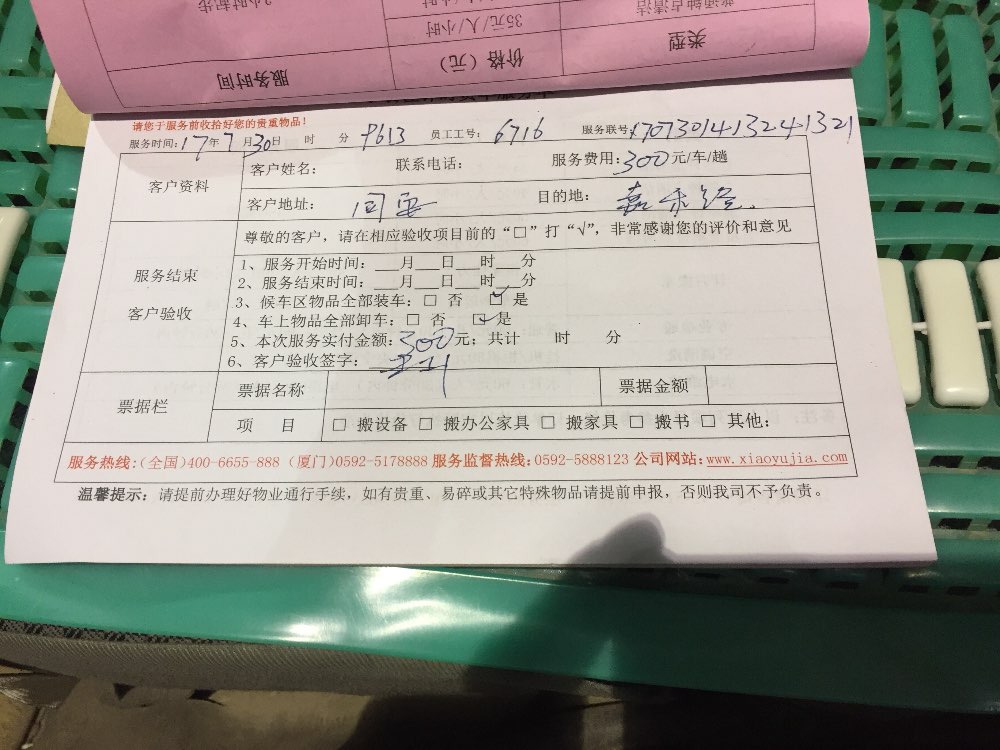 普通钟点清洁
35元/人/小时
2小时起步
类型
价格（元）
服务时间
请您于服务前收拾好您的贵重物品！
服务时间：17年7月30日 时 分 9613 员工工号： 6716 服务联号：1707301413241321
客户资料
客户姓名： 联系电话： 服务费用：300元/车/趟
客户地址： 同安 目的地：
尊敬的客户，请在相应验收项目前的“□”打“√”，非常感谢您的评价和意见
服务结束
客户验收
1、服务开始时间：___月___日___时___分
2、服务结束时间：___月___日___时___分
3、候车区物品全部装车：□ 否 ☑ 是
4、车上物品全部卸车：□ 否 ☑ 是
5、本次服务实付金额：300元；共计 时 分
6、客户验收签字：
票据栏
票据名称 票据金额
项 目 □ 搬设备 □ 搬办公家具 □ 搬家具 □ 搬书 □ 其他：
服务热线：(全国)400-6655-888 (厦门)0592-5178888 服务监督热线：0592-5888123 公司网站：www.xiaoyujia.com
温馨提示：请提前办理好物业通行手续，如有贵重、易碎或其它特殊物品请提前申报，否则我司不予负责。